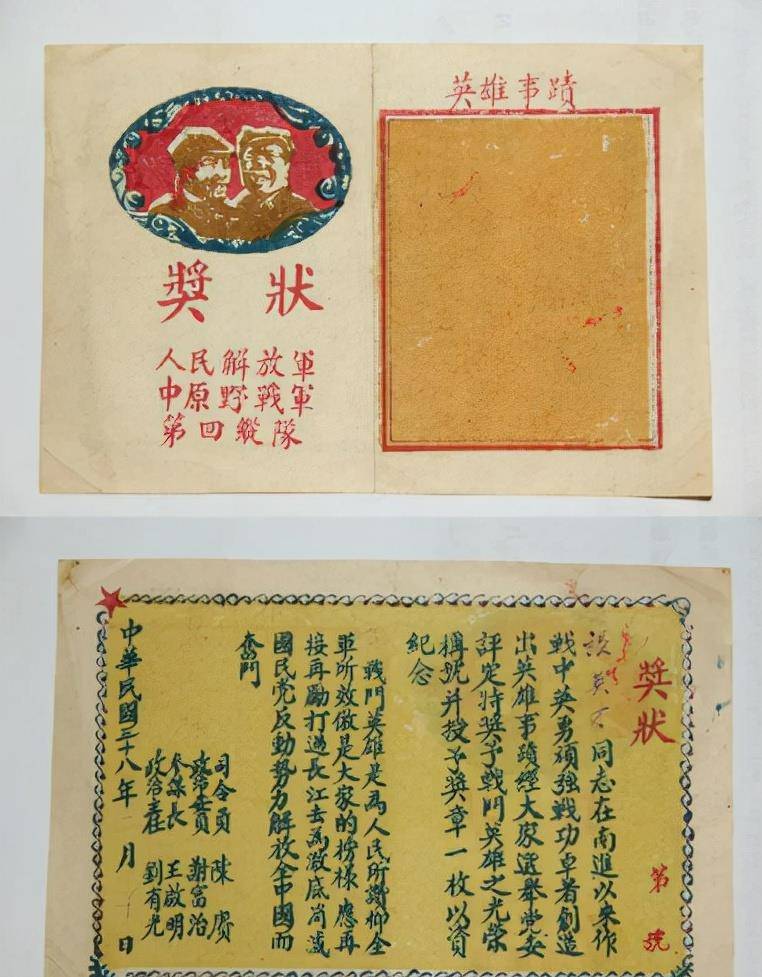 英雄事蹟
獎狀
人民解放軍
中原野戰軍
第四縱隊
獎狀
第 號
同志在南進以來作
戰中英勇頑强戰功卓著創造
出英雄事蹟經大家選舉党委
評定特獎予戰鬥英雄之光榮
稱號并授予獎章一枚以資
紀念
戰鬥英雄是為人民所讚仰全
軍所效倣是大家的榜樣應再
接再勵打過長江去為澈底消滅
國民党反動勢力解放全中國而
奮鬥
司令員 陳賡
政治委員 謝富治
參謀長 王啟明
政治主任 劉有光
中華民國三十八年一月 日